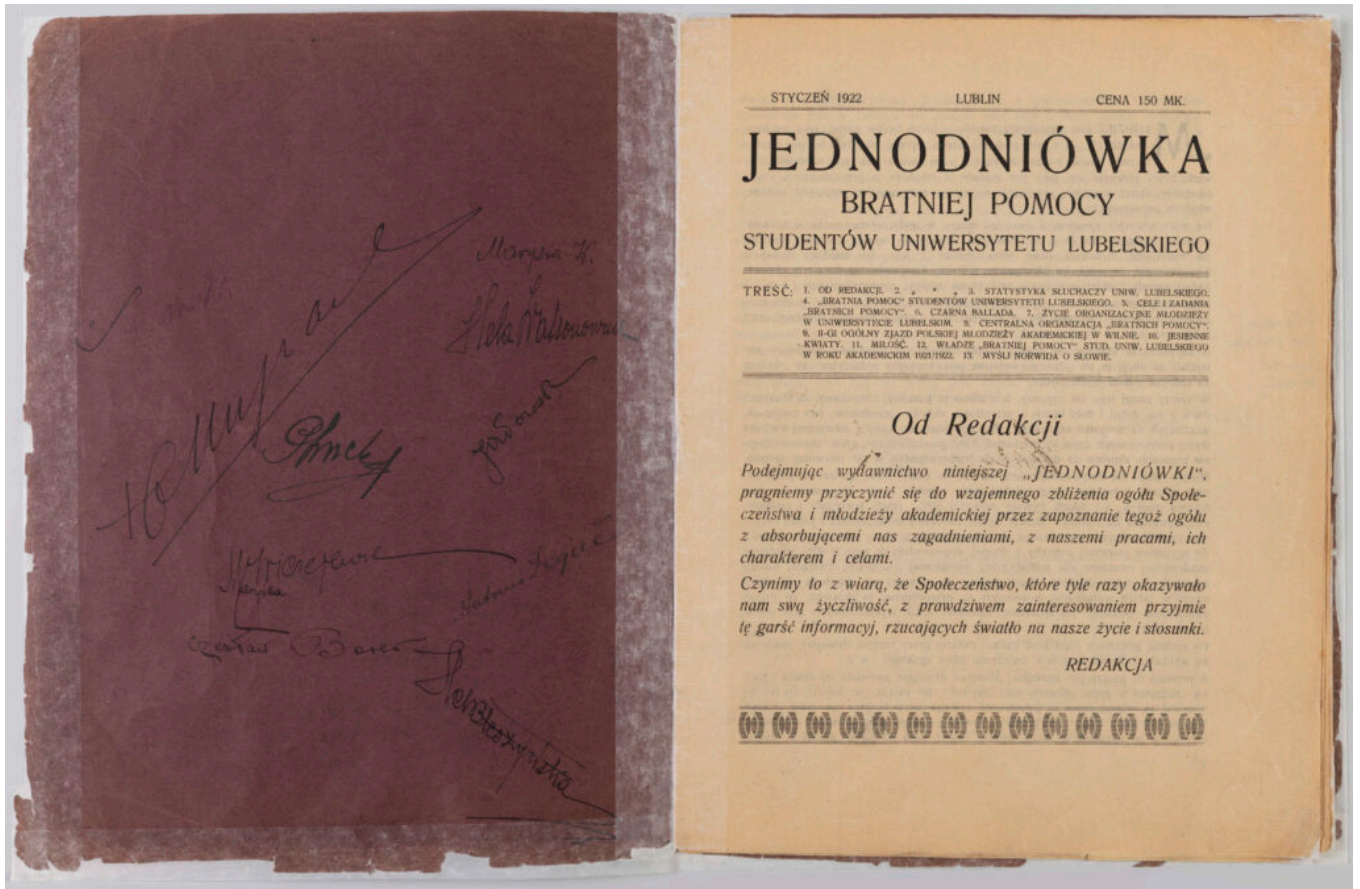 Marysia K.
Hela
Marysia
Czesław
STYCZEŃ 1922 LUBLIN CENA 150 MK.
JEDNODNIÓWKA
BRATNIEJ POMOCY
STUDENTÓW UNIWERSYTETU LUBELSKIEGO
TREŚĆ: 1. OD REDAKCJI. 2. * * * 3. STATYSTYKA SŁUCHACZY UNIW. LUBELSKIEGO.
4. „BRATNIA POMOC" STUDENTÓW UNIWERSYTETU LUBELSKIEGO. 5. CELE I ZADANIA
„BRATNICH POMOCY". 6. CZARNA BALLADA. 7. ŻYCIE ORGANIZACYJNE MŁODZIEŻY
W UNIWERSYTECIE LUBELSKIM. 8. CENTRALNA ORGANIZACJA „BRATNICH POMOCY".
9. II-GI OGÓLNY ZJAZD POLSKIEJ MŁODZIEŻY AKADEMICKIEJ W WILNIE. 10. JESIENNE
KWIATY. 11. MIŁOŚĆ. 12. WŁADZE „BRATNIEJ POMOCY" STUD. UNIW. LUBELSKIEGO
W ROKU AKADEMICKIM 1921/1922. 13. MYŚLI NORWIDA O SŁOWIE.
Od Redakcji
Podejmując wydawnictwo niniejszej „JEDNODNIÓWKI",
pragniemy przyczynić się do wzajemnego zbliżenia ogółu Społe-
czeństwa i młodzieży akademickiej przez zapoznanie tegoż ogółu
z absorbującemi nas zagadnieniami, z naszemi pracami, ich
charakterem i celami.
Czynimy to z wiarą, że Społeczeństwo, które tyle razy okazywało
nam swą życzliwość, z prawdziwem zainteresowaniem przyjmie
tę garść informacyj, rzucających światło na nasze życie i stosunki.
REDAKCJA